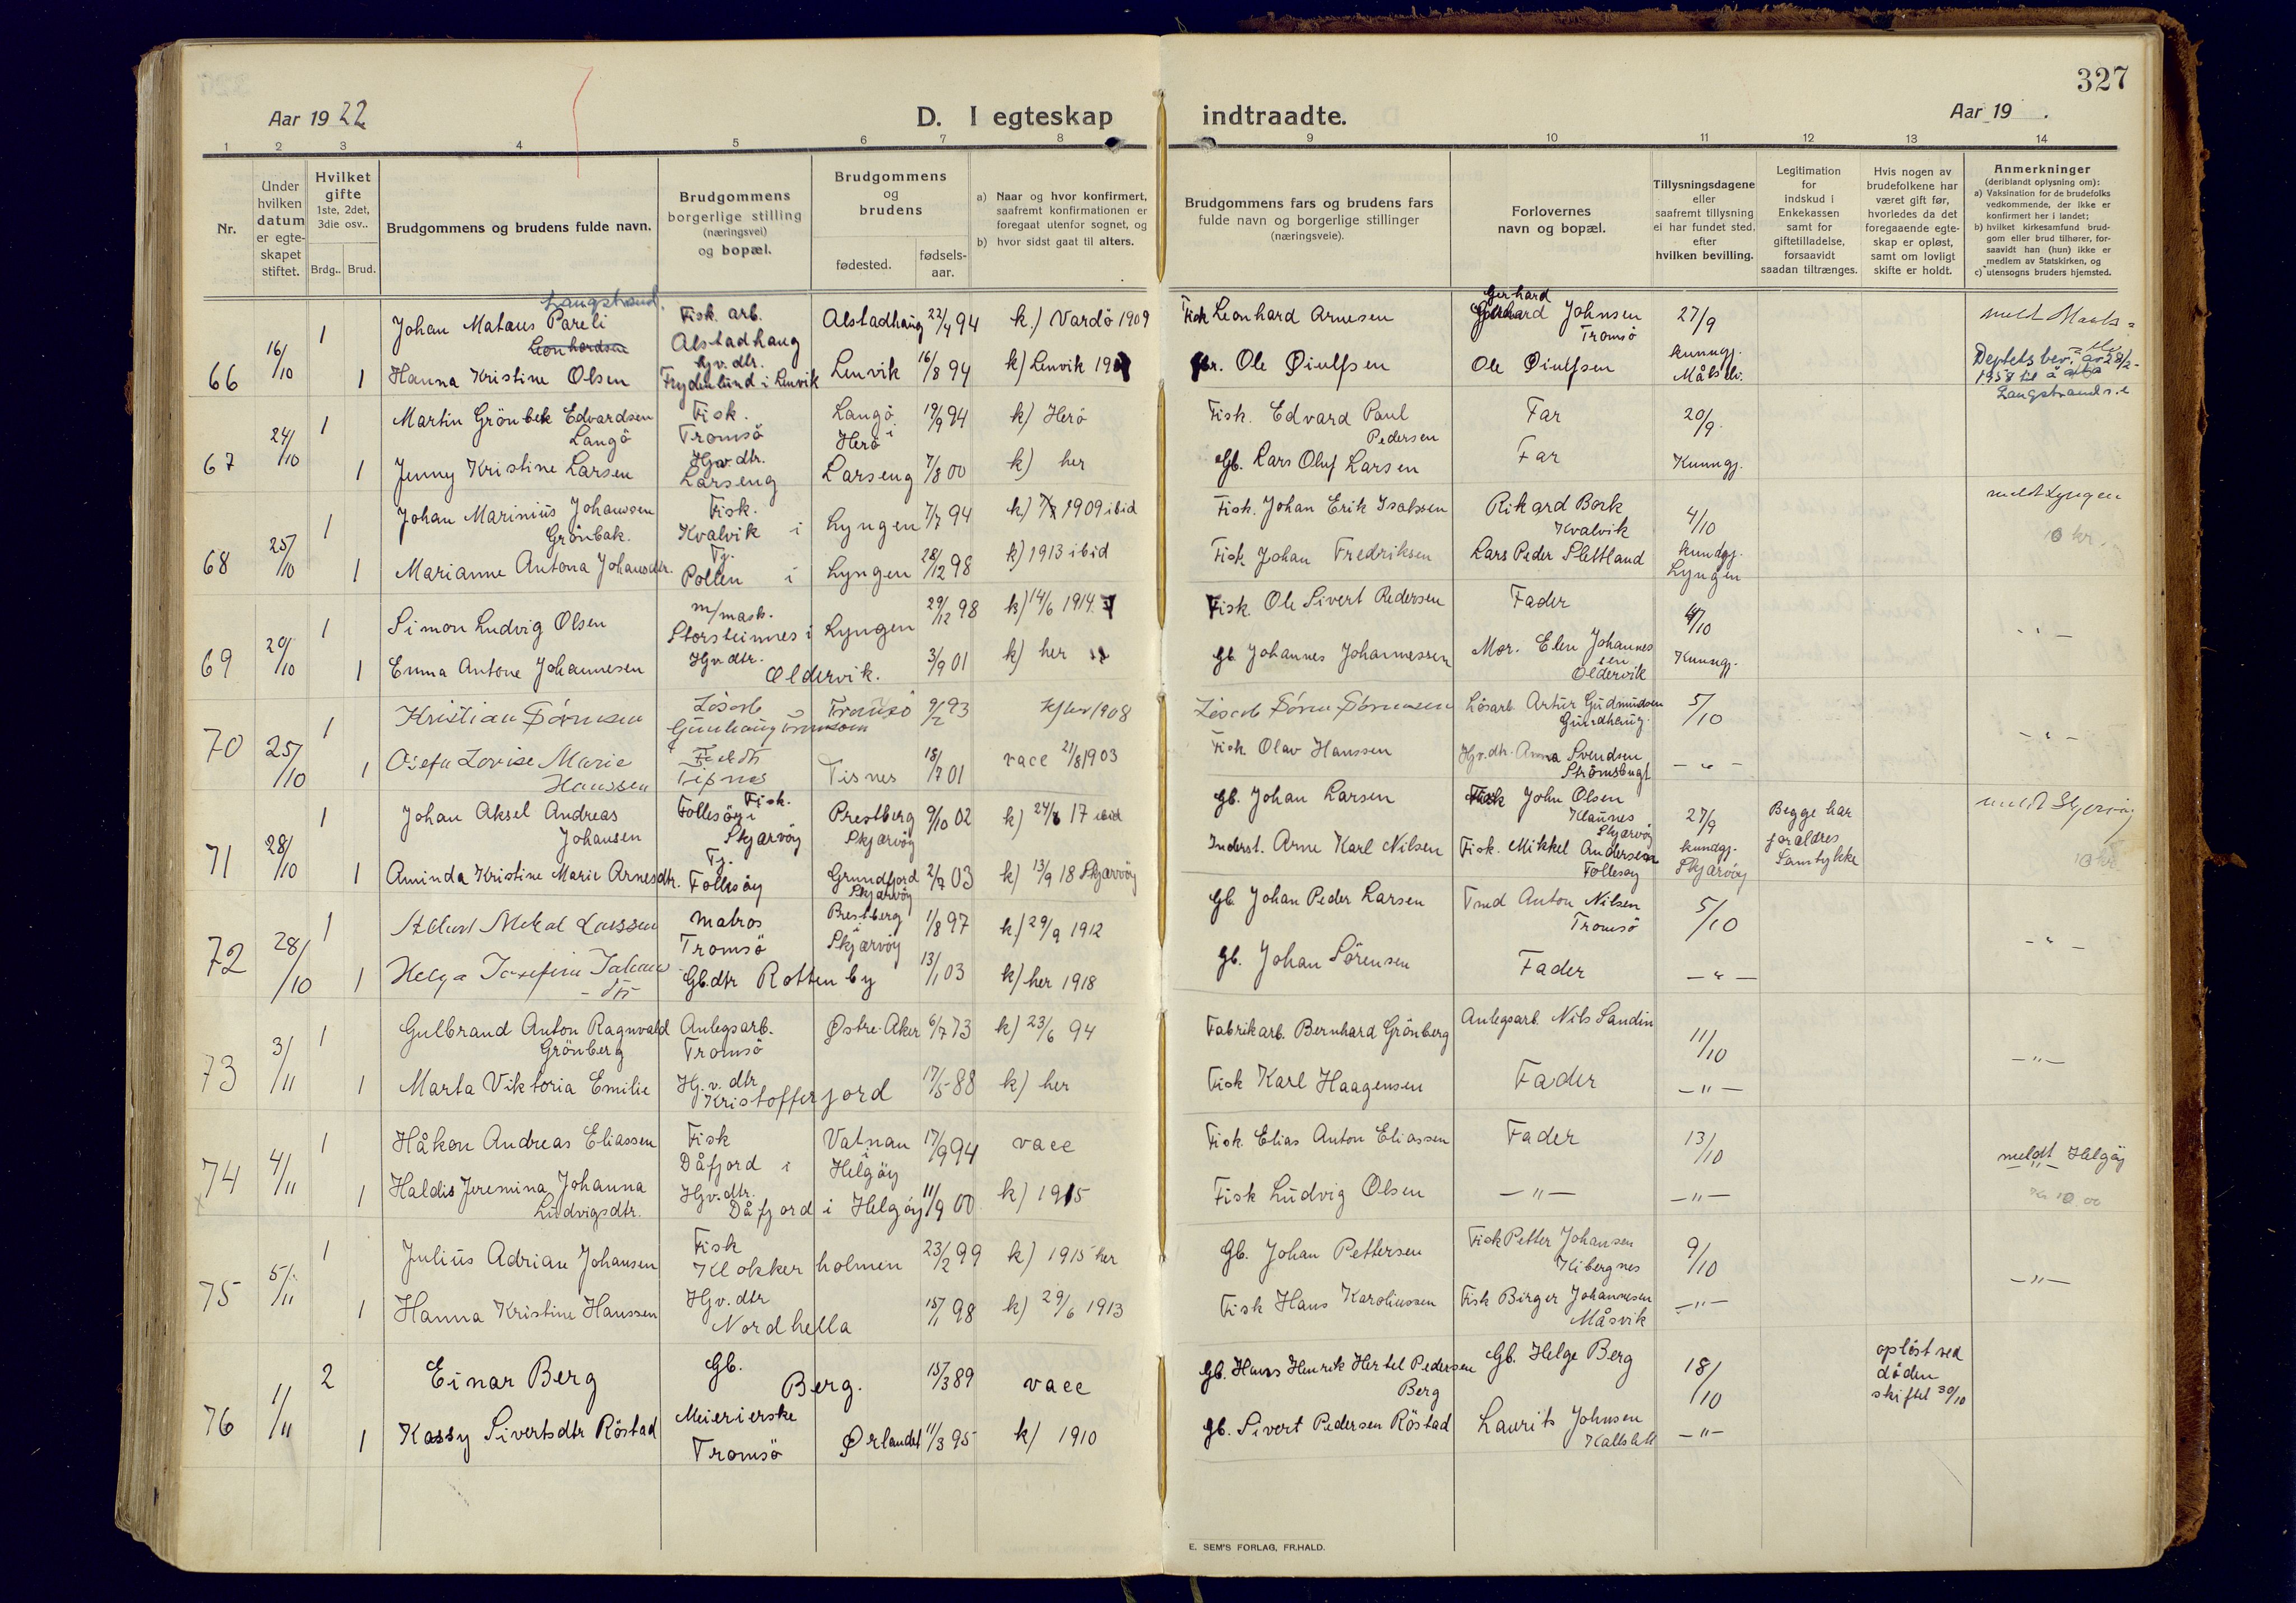 327
Aar 1922
D. I egteskap indtraadte.
Aar 19 .
1 2 3 4 5 6 7 8 9 10 11 12 13 14
Nr.
Under
hvilken
datum
er egte-
skapet
stiftet.
Hvilket
gifte
1ste, 2det,
3die osv..
Brdg.. Brud.
Brudgommens og brudens fulde navn.
Brudgommens
borgerlige stilling
(næringsvei)
og bopæl.
Brudgommens
og
brudens
fødested.
fødsels-
aar.
a) Naar og hvor konfirmert,
saafremt konfirmationen er
foregaat utenfor sognet, og
b) hvor sidst gaat til alters.
Brudgommens fars og brudens fars
fulde navn og borgerlige stillinger
(næringsveie).
Forlovernes
navn og bopæl.
Tillysningsdagene
eller
saafremt tillysning
ei har fundet sted,
efter
hvilken bevilling.
Legitimation
for
indskud i
Enkekassen
samt for
giftetilladelse,
forsaavidt
saadan tiltrænges.
Hvis nogen av
brudefolkene har
været gift før,
hvorledes da det
foregaaende egte-
skap er opløst,
samt om lovligt
skifte er holdt.
Anmerkninger
(deriblandt oplysning om):
a) Vaksination for de brudefolks
vedkommende, der ikke er
konfirmert her i landet;
b) hvilket kirkesamfund brud-
gom eller brud tilhører, for-
saavidt han (hun) ikke er
medlem av Statskirken, og
c) utensogns bruders hjemsted.
66 16/10
1 Johan Mataus Pareli Langstrand.
Leonhardsen
Fisk. arb.
Alstadhaug
Alstadhaug 22/4 94 k.) Vardö 1909
Fisk Leonhard Arnesen
Gerhard Johnsen
Tromsö
27/9
1 Hanna Kristine Olsen
Hv. dtr.
Frydenlund i Lenvik
Lenvik 16/8 94 k) Lenvik
Ole Øiulfsen
Ole Øiulfsen
kunngj.
Målselv.
meldt
Deptets bev. av 28/2-
1958 til å
Langstrand
67 24/10
1 Martin Grönbek Edvardsen
Langö
Fisk.
Tromsö
Langö i
Herö
19/9 94 k) Herö
Fisk. Edvard Paul
Pedersen
Far
20/9.
1 Jenny Kristine Larsen
Hjv. dtr.
Larseng
Larseng 7/8 00 k) her
Gb. Lars Oluf Larsen
Far
Kunngj.
68 25/10
1 Johan Marinius Johanssen
Grönbak.
Fisk.
Kvalvik i
Lyngen 7/7 94 k) 1909 ibid
Fisk. Johan Erik Isaksen
Rikard Bork
Kvalvik
4/10
1 Marianne Antona Johansdtr.
Tj.
Pollen i
Lyngen 28/12 98 k) 1913 ibid
Fisk. Johan Fredriksen
Lars Peder Slettland
kundgj.
Lyngen
meldt Lyngen
10 kr.
69 29/10
1 Simon Ludvig Olsen
m/mask.
Storsteinnes i
Lyngen
29/12 98 k) 14/6 1914.
Fisk. Ole Sivert Pedersen
Fader
4/10
1 Emma Antone Johannesen
Hjv. dtr.
Oldervik.
3/9 01 k) her
Gb Johannes Johannessen
Mor. Elen Johannes
sen
Oldervik
Kunngj.
- " -
70 25/10
1 Kristian Sörensen
Lösarb
Tromsö 9/2 93 k/her 1908
Lösarb Sören Sörensen
Lösarb. Artur Gudmudsen
Gundhaug.
5/10
1 Osefa Lovise Marie
Hanssen
Tisnes
Tisnes 18/7 01 vacc 21/8 1903
Fisk Olav Hanssen
Hjv. dtr. Anna Svendsen
Strömsbugt
- " -
- " -
71 28/10
1 Johan Aksel Andreas
Johansen
Fisk.
Follesöy i
Skjærvöy
Prestberg
Skjærvöy
9/10 02 k) 24/8 17 ibid
Gb. Johan Larsen
Fisk John Olsen
Klaunes
Skjærvöy
27/9
Begge har
foraldres
Samtykke
1 Aminda Kristine Marie Arnesdtr.
Tj.
Follesöy
Grundfjord
Skjærvöy
2/7 03 k) 13/9 18 Skjærvöy
Inderst. Arne Karl Nilsen
Fisk. Mikkel Andersen
Follesøy
kundgj.
Skjærvöy
meldt Skjervöy
10 kr.
72 28/10
1 Mikal Larssen
Matros
Tromsö
Prestberg
Skjærvöy
1/8 97 k) 29/9 1912
Gb. Johan Peder Larsen
Anton Nilsen
Tromsö
5/10
1 Helga Josefine Johans
-dtr
Gb.dtr Rottenby
13/1 03 k) her 1918
Gb. Johan Sörensen
Fader
- " -
- " -
73 3/11
1 Gulbrand Anton Ragnvald
Grönberg
Anlegsarb.
Tromsö
Østre-Aker 6/7 73 k) 23/6 94
Fabrikarb. Bernhard Grönberg
Anlegsarb. Nils Sandin
11/10
1 Marta Viktoria Emilie
Hj. v. dtr
Kristofferjord
17/5 88 k) her
Fisk Karl Haagensen
Fader
- " -
- " -
74 4/11
1 Håkon Andreas Eliassen
Fisk
Dåfjord i
Vatnan i
Helgöy
17/9 94 vacc
Fisk. Elias Anton Eliassen
Fader
13/10
1 Haldis Jeremina Johanna
Ludvigsdtr.
Hjv. dtr.
Dåfjord i Helgöy
11/9 00 k) 1915
Fisk Ludvig Olsen
- " -
- " -
meldt Helgöy
- " -
Kr 10.00
75 5/11
1 Julius Adrian Johansen
Fisk
Klokkerholmen
23/2 99 k) 1915 her
Gb. Johan Pettersen
Fisk Petter Johansen
Kibergnes
9/10
1 Hanna Kristine Hanssen
Hjv. dtr
Nordhella
15/1 98 k) 29/6 1913
Fisk Hans Karoliussen
Fisk Birger Johannesen
Måsvik
- " -
- " -
76 1/11
2 Einar Berg
Gb.
Berg.
15/3 89 vacc
Gb. Hans Henrik Hertel Pedersen
Berg
Gb. Helge Berg
18/10
opløst ved
døden
skiftet 30/10
1 Kassy Sivertsdtr Röstad
Meierierske
Tromsö
Ørlandet 11/3 95 k) 1910
Gb. Sivert Pedersen Röstad
Laurits Johnsen
Kalslett
- " -
E. SEM'S FORLAG, FR.HALD.